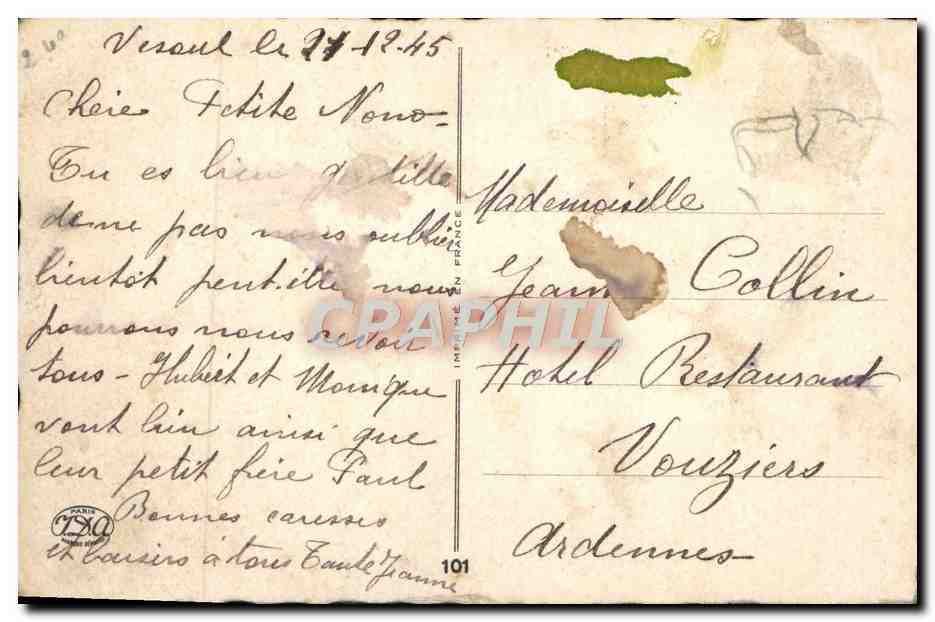 Vesoul le 27-12-45
Chère Petite Nono-
Tu es bien gentille
de ne pas nous oublier
bientôt peut-être nous
pourrons nous revoir
tous - Hubert et Monique
vont bien ainsi que
leur petit frère Paul
Bonnes caresses
et baisers à tous Tante Jeanne
PARIS
101
IMPRIMÉ EN FRANCE
CPAPHIL
Mademoiselle
Collin
Hotel Restaurant
Vouziers
Ardennes